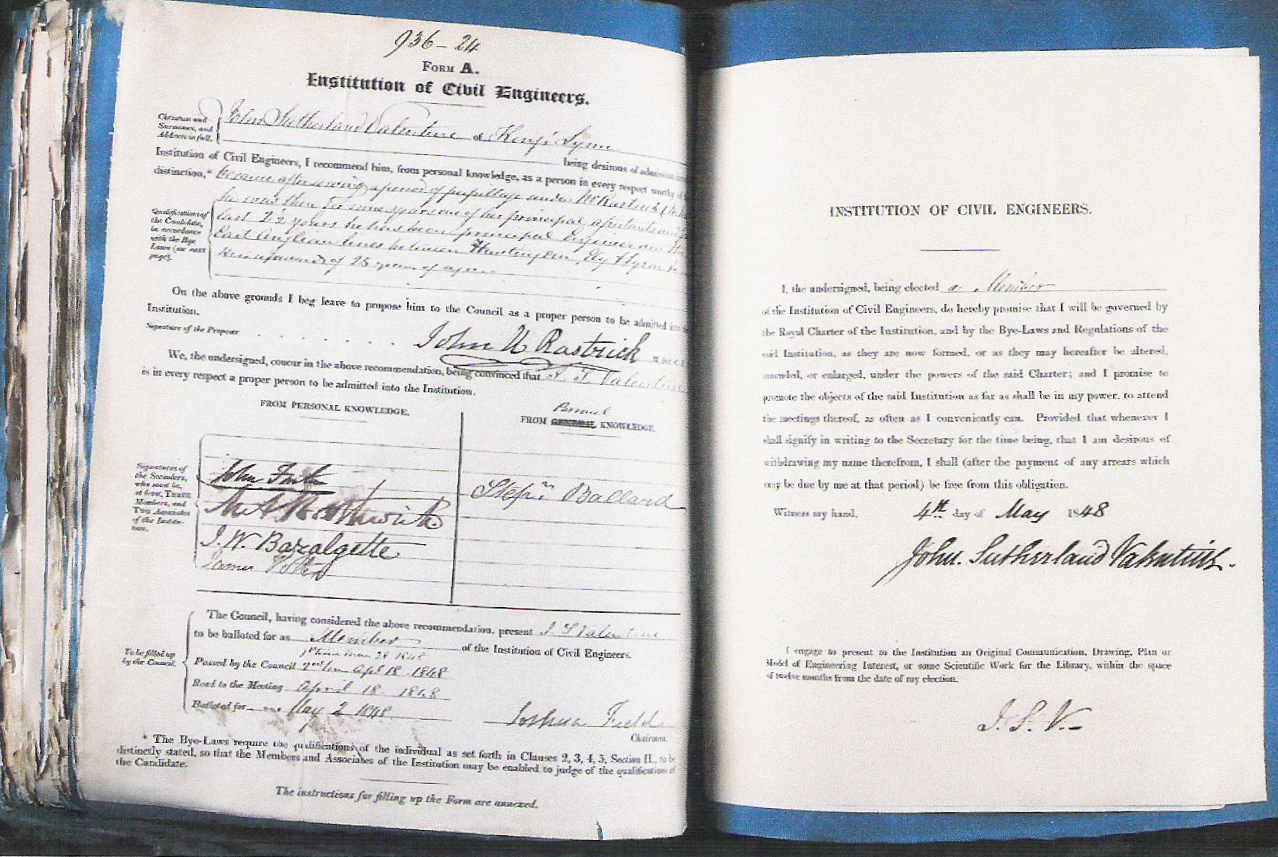 936-24
FORM A.
Institution of Civil Engineers.
Christian and
Surnames, and
Address in full.
John Sutherland Valentine of King's Lynn
being desirous of admission
Institution of Civil Engineers, I recommend him, from personal knowledge, as a person in every respect worthy of
distinction,*
became after serving a period of pupillage under
he was there for some years one of his principal assistants and
last 2 2 years he has been principal Engineer on
East Anglian lines between Huntingdon, Ely & Lynn
of 25 years of age
Qualifications of
the Candidate,
in accordance
with the Bye
Laws (see next
page).
On the above grounds I beg leave to propose him to the Council as a proper person to be admitted into
Institution.
Signature of the Proposer
John U Rastrick
We, the undersigned, concur in the above recommendation, being convinced that J. S. Valentine
is in every respect a proper person to be admitted into the Institution.
FROM PERSONAL KNOWLEDGE.
FROM GENERAL KNOWLEDGE.
Signatures of
the Seconders,
who must be,
at least, THREE
Members, and
TWO Associates
of the Institu-
tion.
John
Stepn Ballard
J. W. Bazalgette
James
The Council, having considered the above recommendation, present J S Valentine
to be balloted for as Member of the Institution of Civil Engineers.
To be filled up
by the Council.
1st time Mar 28 1848
Passed by the Council 2nd time Apl 18. 1848
Read to the Meeting April 18 1848
Balloted for May 2 1848
Joshua Field
Chairman.
* The Bye-Laws require the qualifications of the individual as set forth in Clauses 2, 3, 4, 5, Section II., to be
distinctly stated, so that the Members and Associates of the Institution may be enabled to judge of the qualifications of
the Candidate.
The instructions for filling up the Form are annexed.
INSTITUTION OF CIVIL ENGINEERS.
I, the undersigned, being elected a Member
of the Institution of Civil Engineers, do hereby promise that I will be governed by
the Royal Charter of the Institution, and by the Bye-Laws and Regulations of the
said Institution, as they are now formed, or as they may hereafter be altered,
amended, or enlarged, under the powers of the said Charter; and I promise to
promote the objects of the said Institution as far as shall be in my power, to attend
the meetings thereof, as often as I conveniently can. Provided that whenever I
shall signify in writing to the Secretary for the time being, that I am desirous of
withdrawing my name therefrom, I shall (after the payment of any arrears which
may be due by me at that period) be free from this obligation.
Witness my hand, 4th day of May 1848
John. Sutherland Valentine.
I engage to present to the Institution an Original Communication, Drawing, Plan or
Model of Engineering Interest, or some Scientific Work for the Library, within the space
of twelve months from the date of my election.
J. S. V.